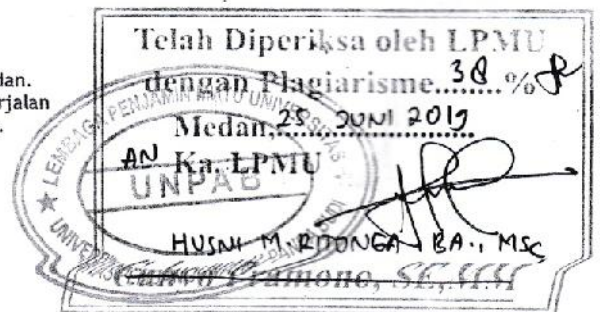 dan.
rjalan
Telah Diperiksa oleh LPMU
dengan Plagiarisme...38...%
Medan, 25 JUNI 2019
AN Ka. LPMU
HUSNI M. RITONGA, BA., MSc
Pramono, SE,MM
LEMBAGA PENJAMIN MUTU UNIVERSITAS
UNPAB